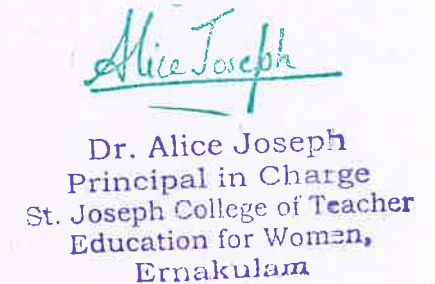 Alice Joseph
Dr. Alice Joseph
Principal in Charge
St. Joseph College of Teacher
Education for Women,
Ernakulam